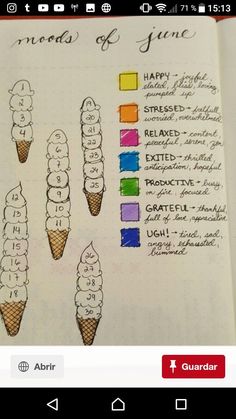 71 % 15:13
moods of june
HAPPY → joyful,
elated, bliss, loving,
pumped up
STRESSED →
worried, overwhelmed
RELAXED → content,
peaceful, serene, zen
EXITED → thrilled,
anticipation, hopeful
PRODUCTIVE → busy,
on fire, focused
GRATEFUL → thankful,
full of love, appreciative
UGH! → tired, sad,
angry, exhausted,
bummed
1
2
3
4
5
6
7
8
9
10
11
12
13
14
15
16
17
18
19
20
21
22
23
24
25
26
27
28
29
30
Abrir
Guardar